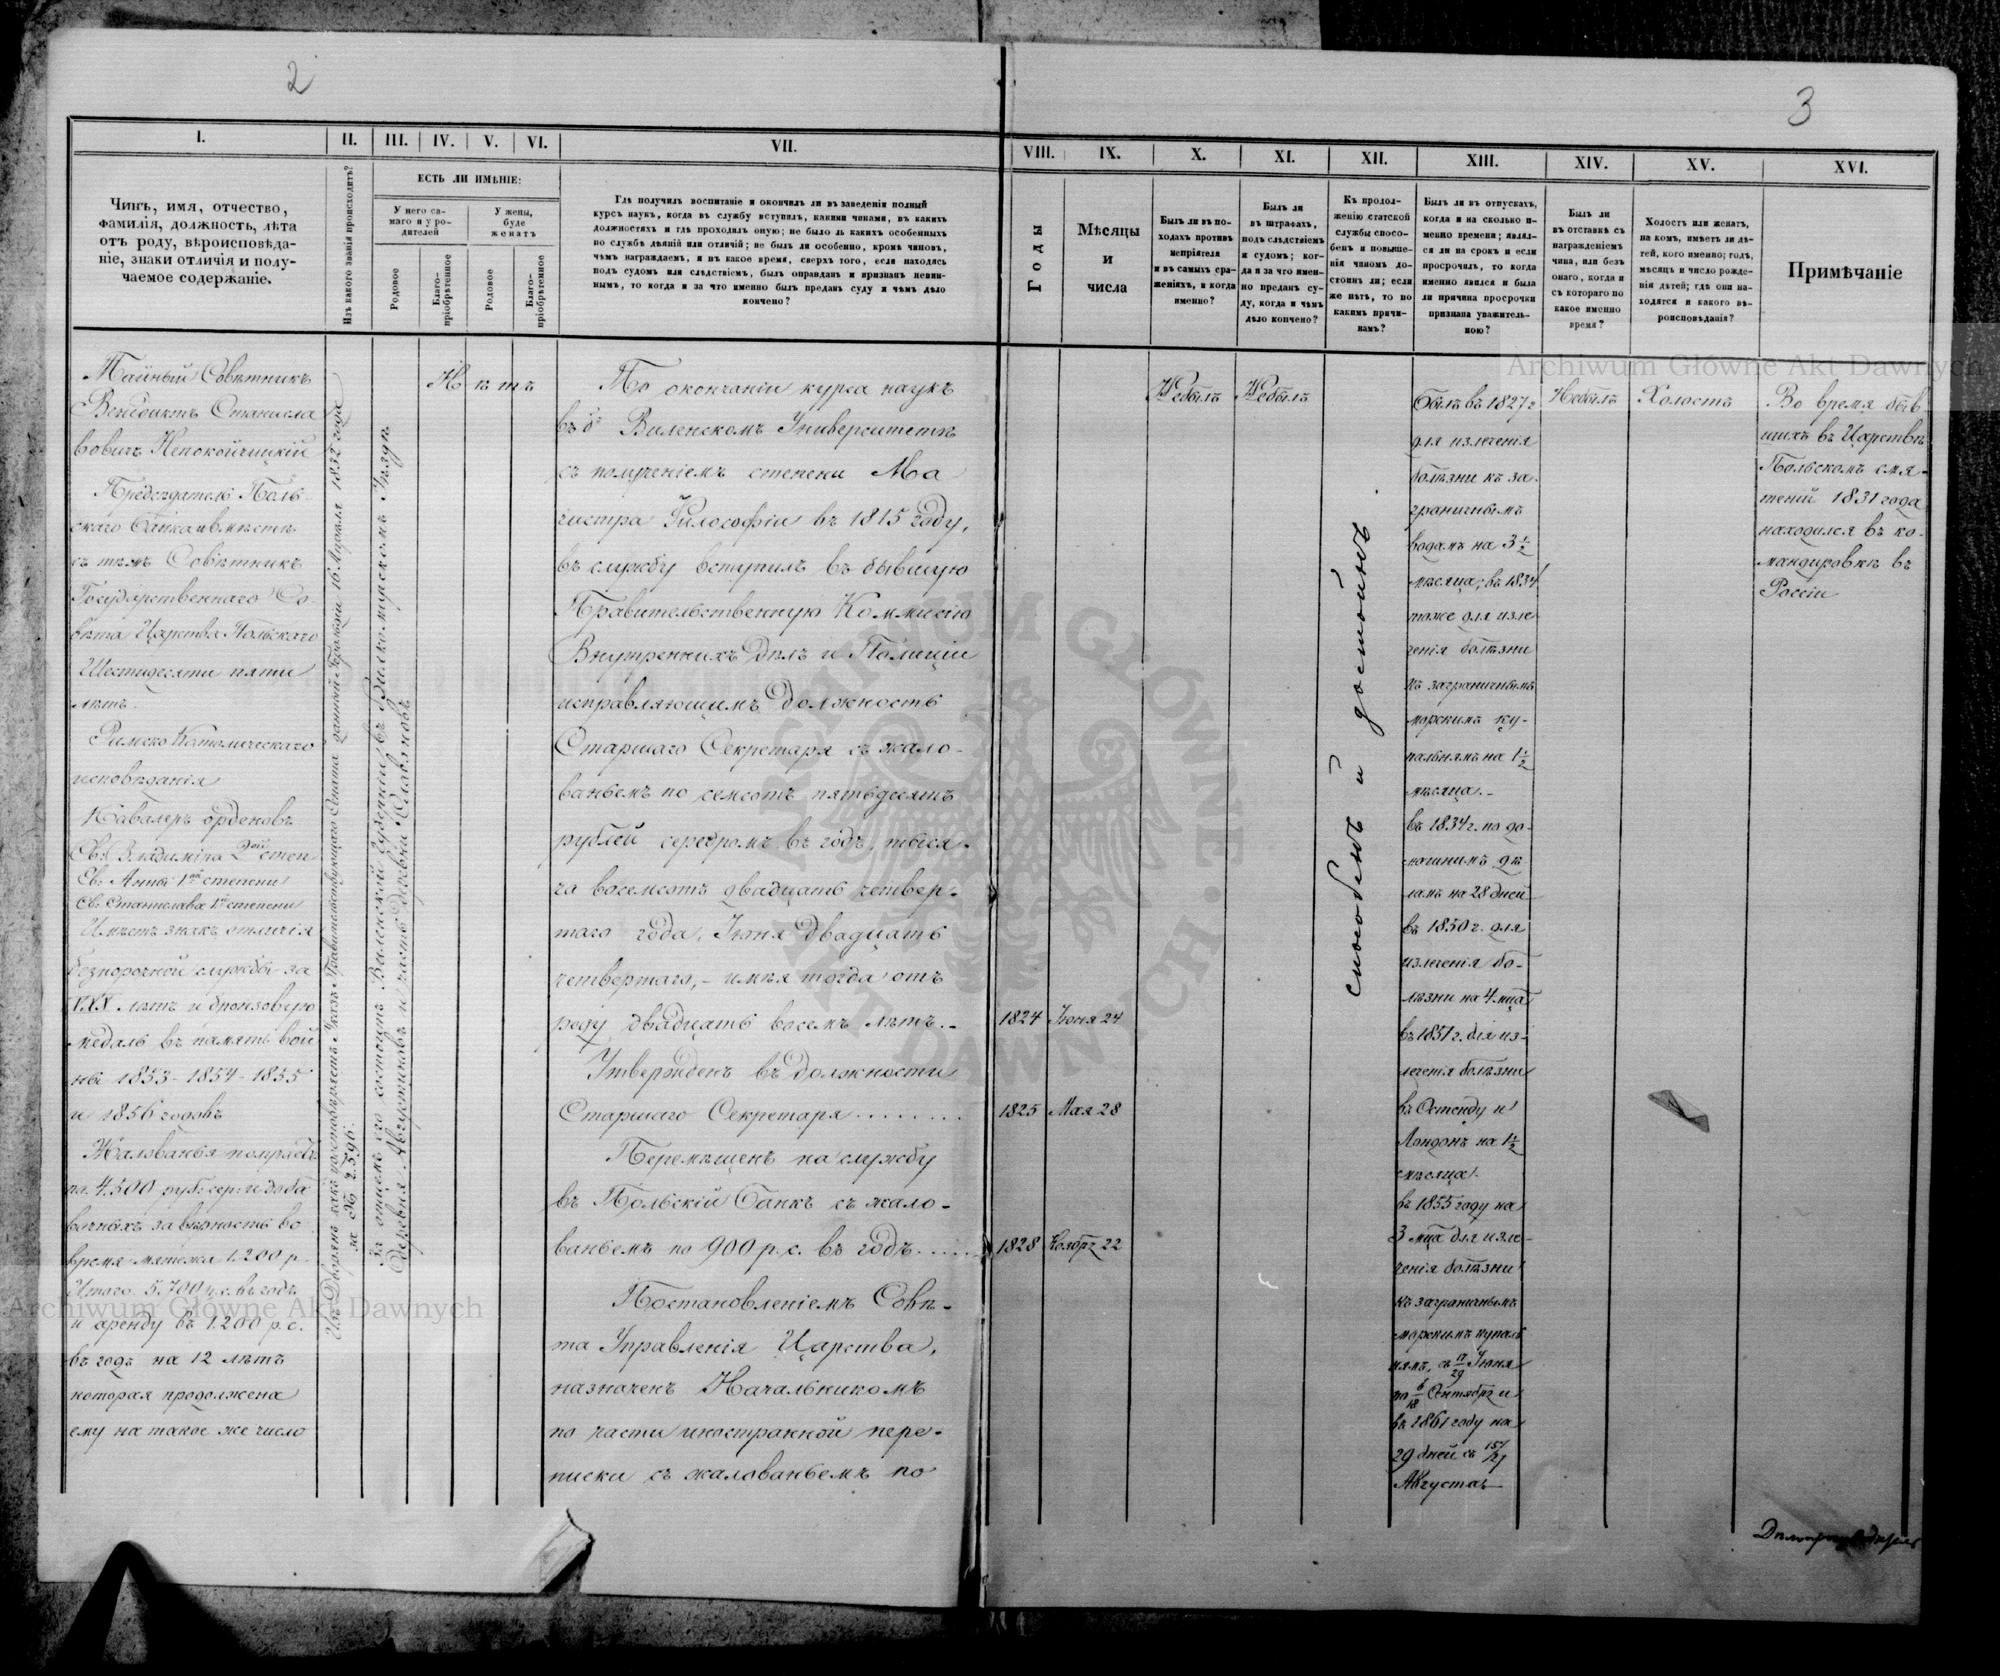 2
3
I.
II.
III.
IV.
V.
VI.
VII.
VIII.
IX.
X.
XI.
XII.
XIII.
XIV.
XV.
XVI.
Чинъ, имя, отчество,
фамилія, должность, лѣта
отъ роду, вѣроисповѣда-
ніе, знаки отличія и полу-
чаемое содержаніе.
Изъ какого званія происходитъ?
ЕСТЬ ЛИ ИМѢНІЕ:
У него са-
маго и у ро-
дителей
У жены,
буде
женатъ
Родовое
Благо-
пріобрѣтенное
Родовое
Благо-
пріобрѣтенное
Гдѣ получилъ воспитаніе и окончилъ ли въ заведеніи полный
курсъ наукъ, когда въ службу вступилъ, какими чинами, въ какихъ
должностяхъ и гдѣ проходилъ оную; не было ль какихъ особенныхъ
по службѣ дѣяній или отличій; не былъ ли особенно, кромѣ чиновъ,
чѣмъ награждаемъ, и въ какое время, сверхъ того, если находясь
подъ судомъ или слѣдствіемъ, былъ оправданъ и признанъ невин-
нымъ, то когда и за что именно былъ преданъ суду и чѣмъ дѣло
кончено?
Годы
Мѣсяцы
и
числа
Былъ ли въ по-
ходахъ противъ
непріятеля
и въ самыхъ сра-
женіяхъ, и когда
именно?
Былъ ли
въ штрафахъ,
подъ слѣдствіемъ
и судомъ; ког-
да и за что имен-
но преданъ су-
ду, когда и чѣмъ
дѣло кончено?
Къ продол-
женію статской
службы спосо-
бенъ и повыше-
нія чиномъ до-
стоинъ ли; если
же нѣтъ, то по
какимъ причи-
намъ?
Былъ ли въ отпускахъ,
когда и на сколько и-
менно времени; являл-
ся ли на срокъ и если
просрочилъ, то когда
именно явился и была
ли причина просрочки
признана уважитель-
ною?
Былъ ли
въ отставкѣ съ
награжденіемъ
чина, или безъ
онаго, когда и
съ котораго по
какое именно
время?
Холостъ или женатъ,
на комъ, имѣетъ ли дѣ-
тей, кого именно; годъ,
мѣсяцъ и число рожде-
нія дѣтей; гдѣ они на-
ходятся и какого вѣ-
роисповѣданія?
Примѣчаніе
Тайный Совѣтникъ
Венедиктъ Станисла
вовичъ Непокойчицкій
Предсѣдатель Поль-
скаго Банка и вмѣстѣ
съ тѣмъ Совѣтникъ
Государственнаго Со-
вѣта Царства Польскаго
Шестидесяти пяти
лѣтъ.
Римско Католическаго
исповѣданія
Кавалеръ орденовъ
Св. Владиміра 2ой степ
Св. Анны 1ой степени
Св. Станислава 1ой степени
Имѣетъ знакъ отличія
безпорочной службы за
XXX лѣтъ и бронзовую
медаль въ память вой
ны 1853-1854-1855
и 1856 годовъ
Жалованья получаетъ
по 4.500 руб. сер. и доба
вочныхъ за вѣрность во
время мятежа 1.200 р.
Итого 5.700 р. с. въ годъ
и аренду въ 1.200 р. с.
въ годъ на 12 лѣтъ
которая продолжена
ему на такое же число
Изъ Дворянъ какъ удостовѣряетъ Указъ Правительствующаго Сената данный Герольдіи 16 Марта 1832 года
за № 2596.
За отцемъ его состоитъ Виленской Губерніи въ Вилкомирскомъ Уѣздѣ
Деревня Августиновъ и часть деревни Славгановъ
Нѣтъ
По окончаніи курса наукъ
въ б. Виленскомъ Университетѣ
съ полученіемъ степени Ма
гистра Философіи въ 1815 году,
въ службу вступилъ въ бывшую
Правительственную Коммисію
Внутреннихъ Дѣлъ и Полиціи
исправляющимъ должность
Старшаго Секретаря съ жало-
ваньемъ по семсотъ пятьдесятъ
рублей серебромъ въ годъ, тыся-
ча восемсотъ двадцать четвер-
таго года, Іюня двадцать
четвертаго, - имѣя тогда отъ
роду двадцать восемь лѣтъ.-
Утвержденъ въ должности
Старшаго Секретаря........
Перемѣщенъ на службу
въ Польскій Банкъ съ жало-
ваньемъ по 900 р. с. въ годъ.....
Постановленіемъ Совѣ-
та Управленія Царства,
назначенъ Начальникомъ
по части иностранной пере-
писки съ жалованьемъ по
1824 Іюня 24
1825 Мая 28
1828 Ноябр 22
Небылъ
Небылъ
способенъ и достойнъ.
Былъ въ 1827 г
для излеченія
болѣзни къ за-
граничнымъ
водамъ на 3 1/2
мѣсяца; въ 1834
тоже для изле
ченія болѣзни
къ заграничнымъ
морскимъ ку-
пальнямъ на 1 1/2
мѣсяца.-
въ 1834 г. по до-
машнимъ дѣ-
ламъ на 28 дней
въ 1850 г. для
излеченія бо-
лѣзни на 4 мца
въ 1851 г. для из-
леченія болѣзни
въ Остенду и
Лондонъ на 1 1/2
мѣсяца.
въ 1855 году на
3 мца для изле-
ченія болѣзни
къ заграничнымъ
морскимъ купаль
нямъ, съ 17/29 Іюня
по 6/18 Сентября и
въ 1861 году на
29 дней съ
Августа
Небылъ
Холостъ
Во время быв
шихъ въ Царствѣ
Польскомъ смя-
теній 1831 года
находился въ ко-
мандировкѣ въ
Россіи
Дѣлопроизводитель
Archiwum Główne Akt Dawnych
Archiwum Główne Akt Dawnych
ARCHIWUM GŁÓWNE AKT DAWNYCH